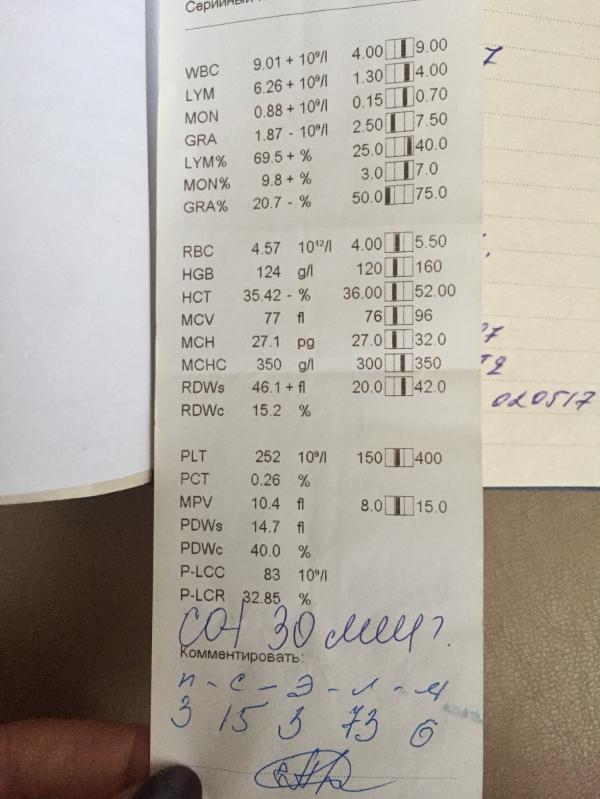 Серийный
WBC 9.01 + 10⁹/l 4.00 9.00
LYM 6.26 + 10⁹/l 1.30 4.00
MON 0.88 + 10⁹/l 0.15 0.70
GRA 1.87 - 10⁹/l 2.50 7.50
LYM% 69.5 + % 25.0 40.0
MON% 9.8 + % 3.0 7.0
GRA% 20.7 - % 50.0 75.0
RBC 4.57 10¹²/l 4.00 5.50
HGB 124 g/l 120 160
HCT 35.42 - % 36.00 52.00
MCV 77 fl 76 96
MCH 27.1 pg 27.0 32.0
MCHC 350 g/l 300 350
RDWs 46.1 + fl 20.0 42.0
RDWc 15.2 %
PLT 252 10⁹/l 150 400
PCT 0.26 %
MPV 10.4 fl 8.0 15.0
PDWs 14.7 fl
PDWc 40.0 %
P-LCC 83 10⁹/l
P-LCR 32.85 %
СОЭ 30 мм/ч.
Комментировать:
п - с - э - л - м
3 15 3 73 6
020517